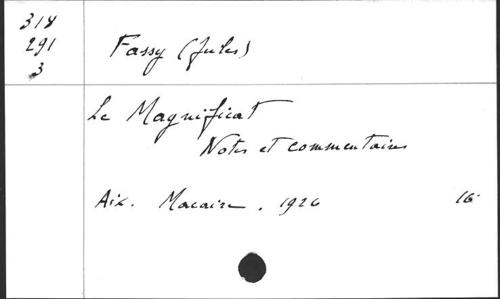 318
291
3
Fassy (Jules)
Le Magnificat
Notes et commentaires
Aix. Macaire. 1926 16